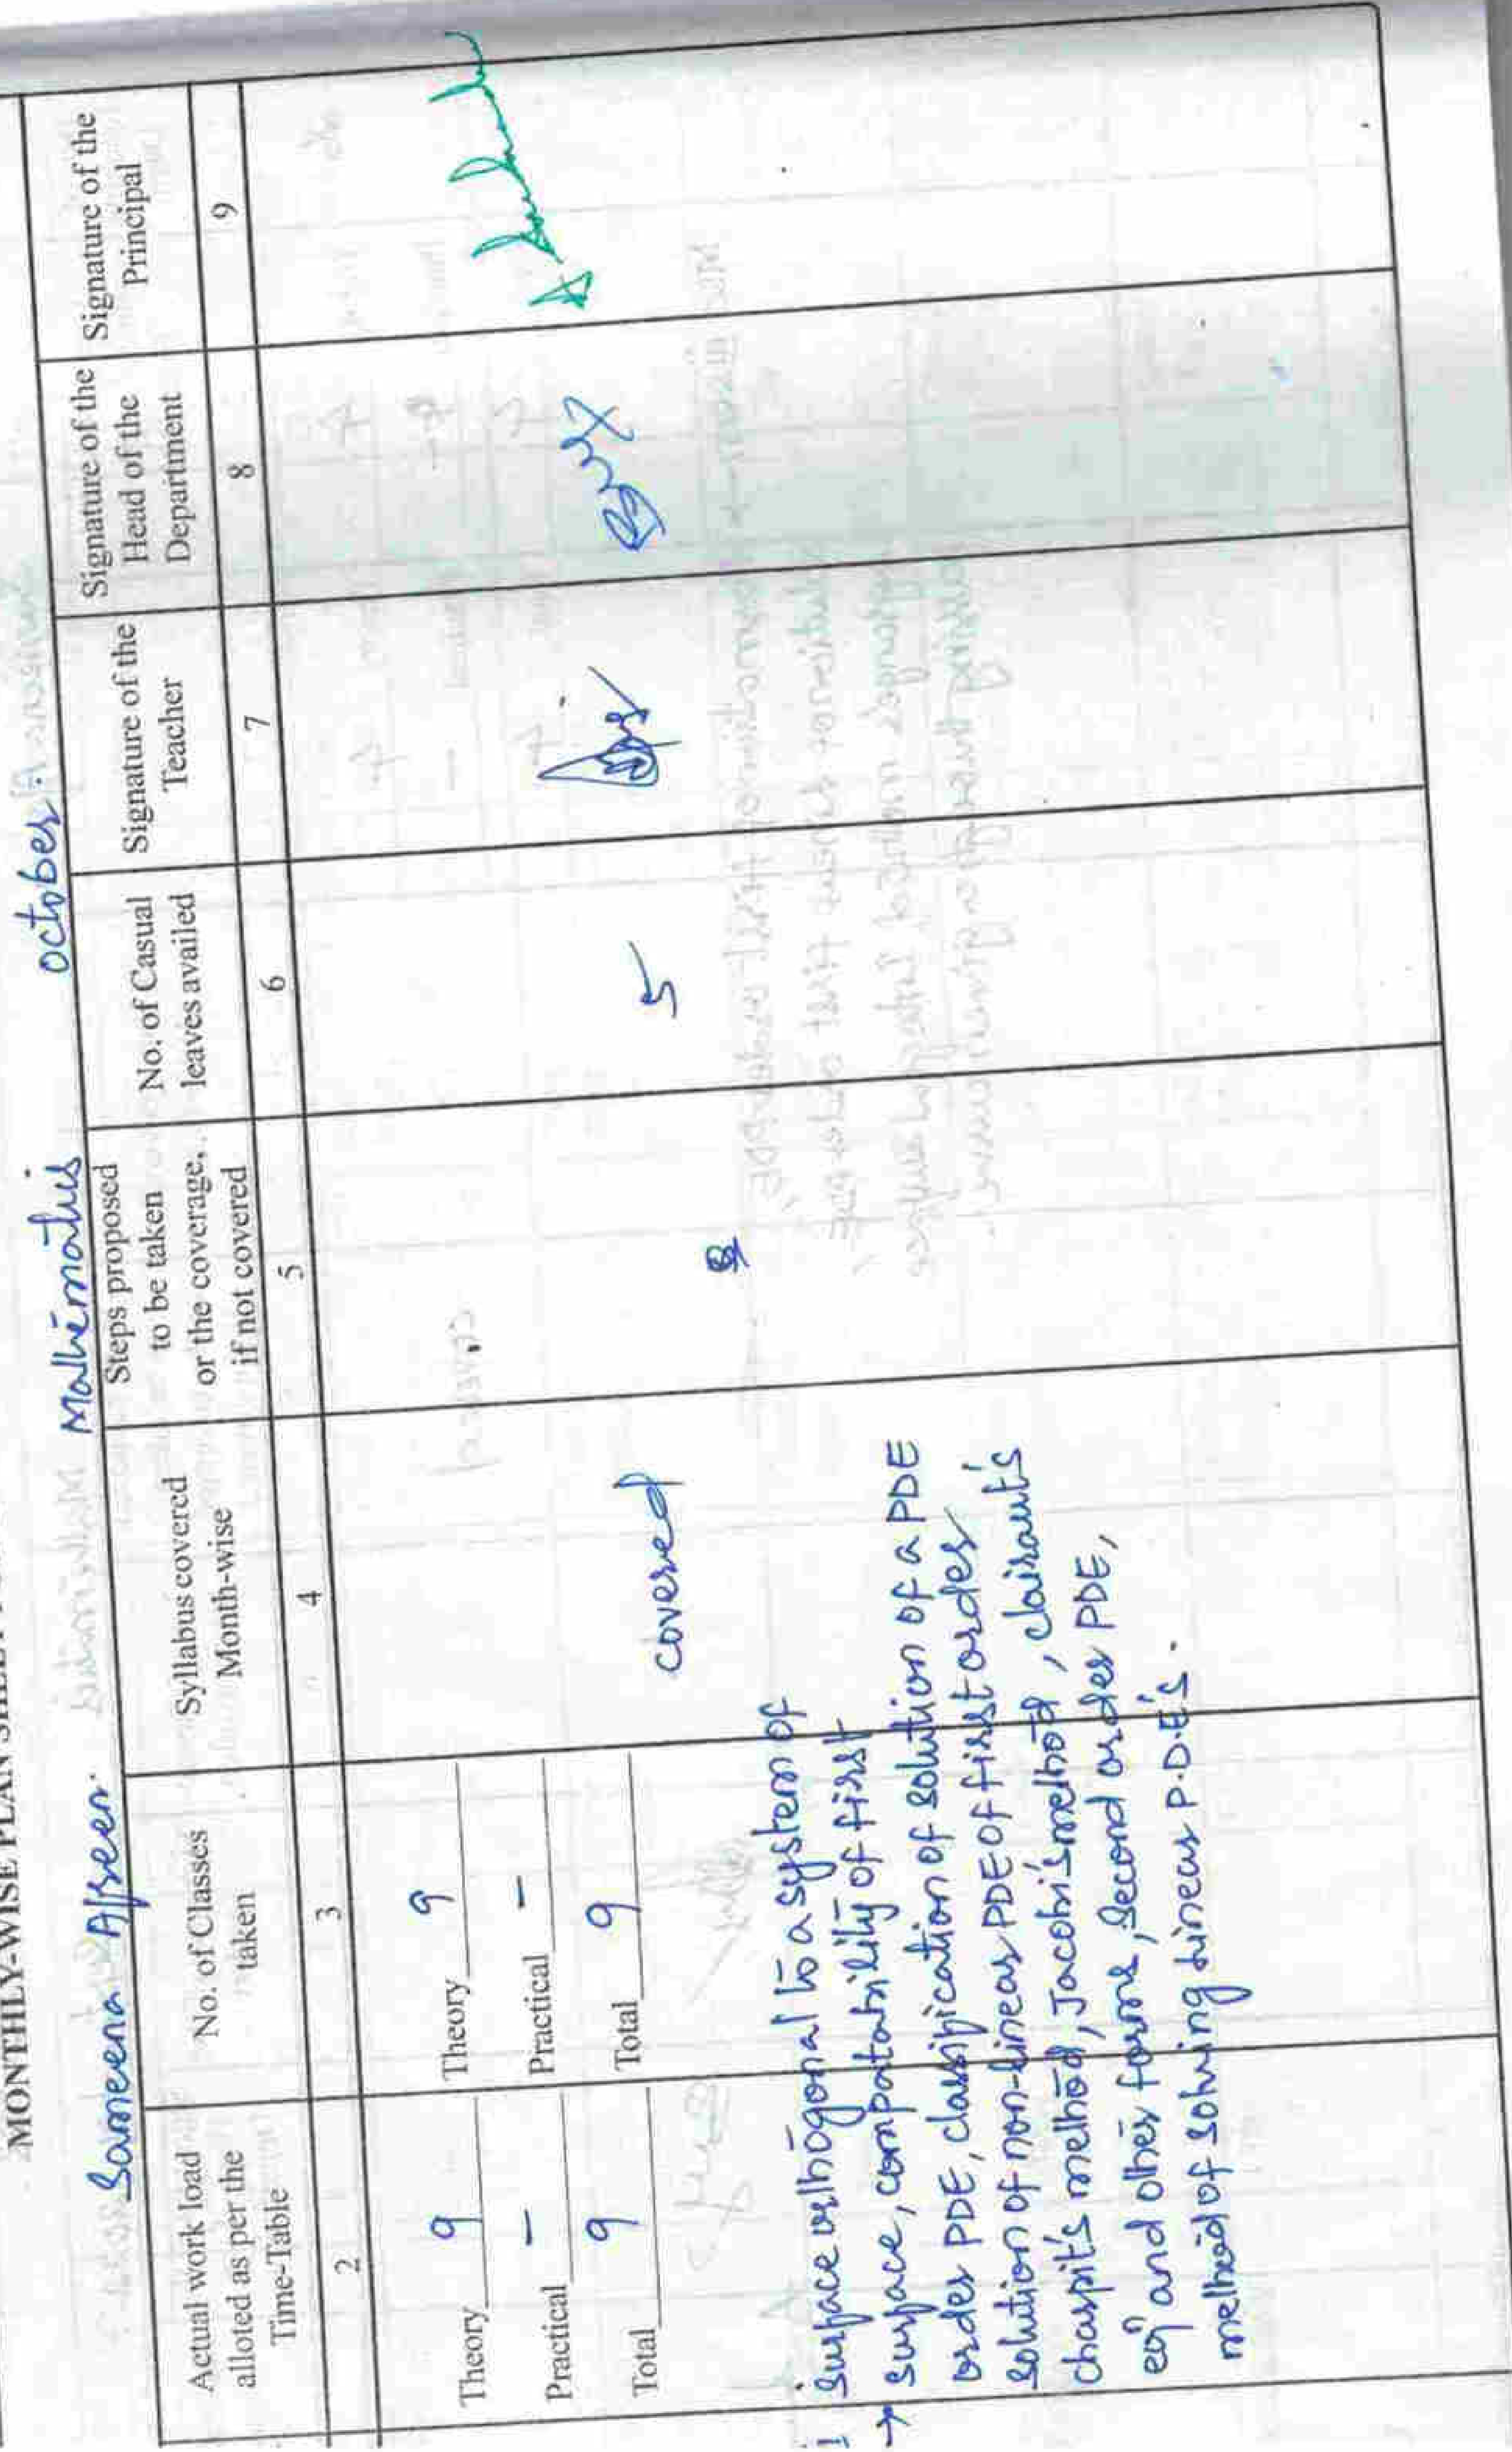 MONTHLY-WISE PLAN
Sameena Afseen. Mathematics October.
Actual work load
alloted as per the
Time-Table
No. of Classes
taken
Syllabus covered
Month-wise
Steps proposed
to be taken
or the coverage,
if not covered
No. of Casual
leaves availed
Signature of the
Teacher
Signature of the
Head of the
Department
Signature of the
Principal
2 3 4 5 6 7 8 9
Theory 9 Theory 9
Practical – Practical –
Total 9 Total 9 covered 5
Surface orthogonal to a system of
→ surface, compatability of first
order PDE, classification of solution of a PDE
solution of non-linear PDE of first order
charpit's method, Jacobi's method, clairaut's
eqn and other forms, Second order PDE,
method of solving Linear P.D.E's.